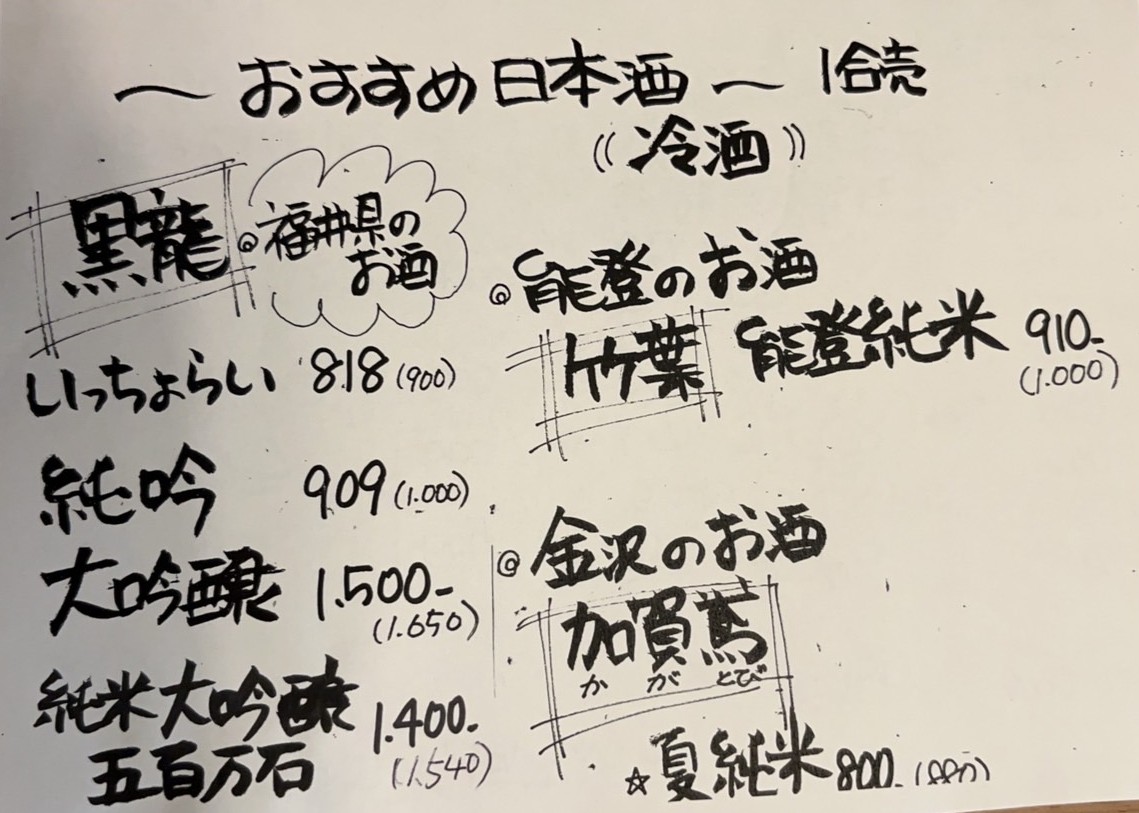 ～ おすすめ 日本酒 ～ 1合売
《冷酒》
黒龍 ◎福井県の
お酒
いっちょらい 818 (900)
純吟 909 (1.000)
大吟醸 1.500-
(1.650)
純米大吟醸
五百万石 1.400-
(1.540)
◎能登のお酒
竹葉 能登純米 910-
(1.000)
◎金沢のお酒
加賀鳶
か が とび
☆夏純米 800- (880)